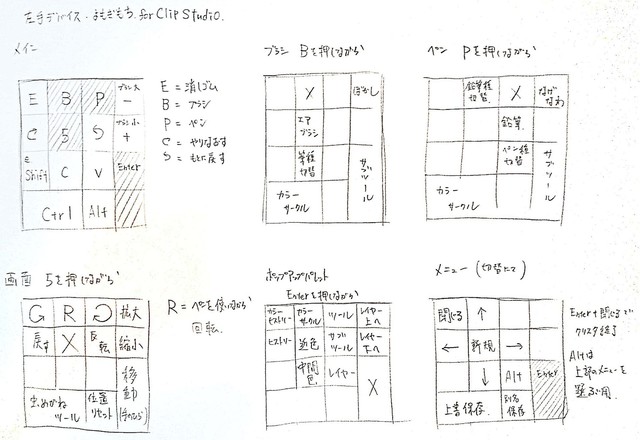 左手デバイス・よもぎもち for Clip Studio.
メイン
E B P ブラシ大 −
C 5 S ブラシ小 +
Shift C V Enter
Ctrl Alt
E = 消しゴム
B = ブラシ
P = ペン
C = やりなおす
S = もとに戻す
ブラシ Bを押しながら
X ぼかし
エア
ブラシ
筆種
切替
サブツール
カラー
サークル
ペン Pを押しながら
鉛筆種
切替
X
なげ
なわ
鉛筆
ペン種
切替
サブツール
カラー
サークル
画面 5を押しながら
R 拡大
戻す X 反転 縮小
移動
虫めがね
ツール
位置
リセット
R = ペンを使いながら
回転.
ポップアップパレット
Enterを押しながら
カラー
ヒストリー
カラー
サークル
ツール
レイヤー
上へ
ヒストリー
近色
サブ
ツール
レイヤー
下へ
中間
色
レイヤー
X
メニュー (切替にて)
閉じる ↑
← 新規 →
↓ Alt Enter
上書保存. 別名
保存
Enter+閉じるで
クリスタ終了
Altは
上部のメニューを
選ぶ用.